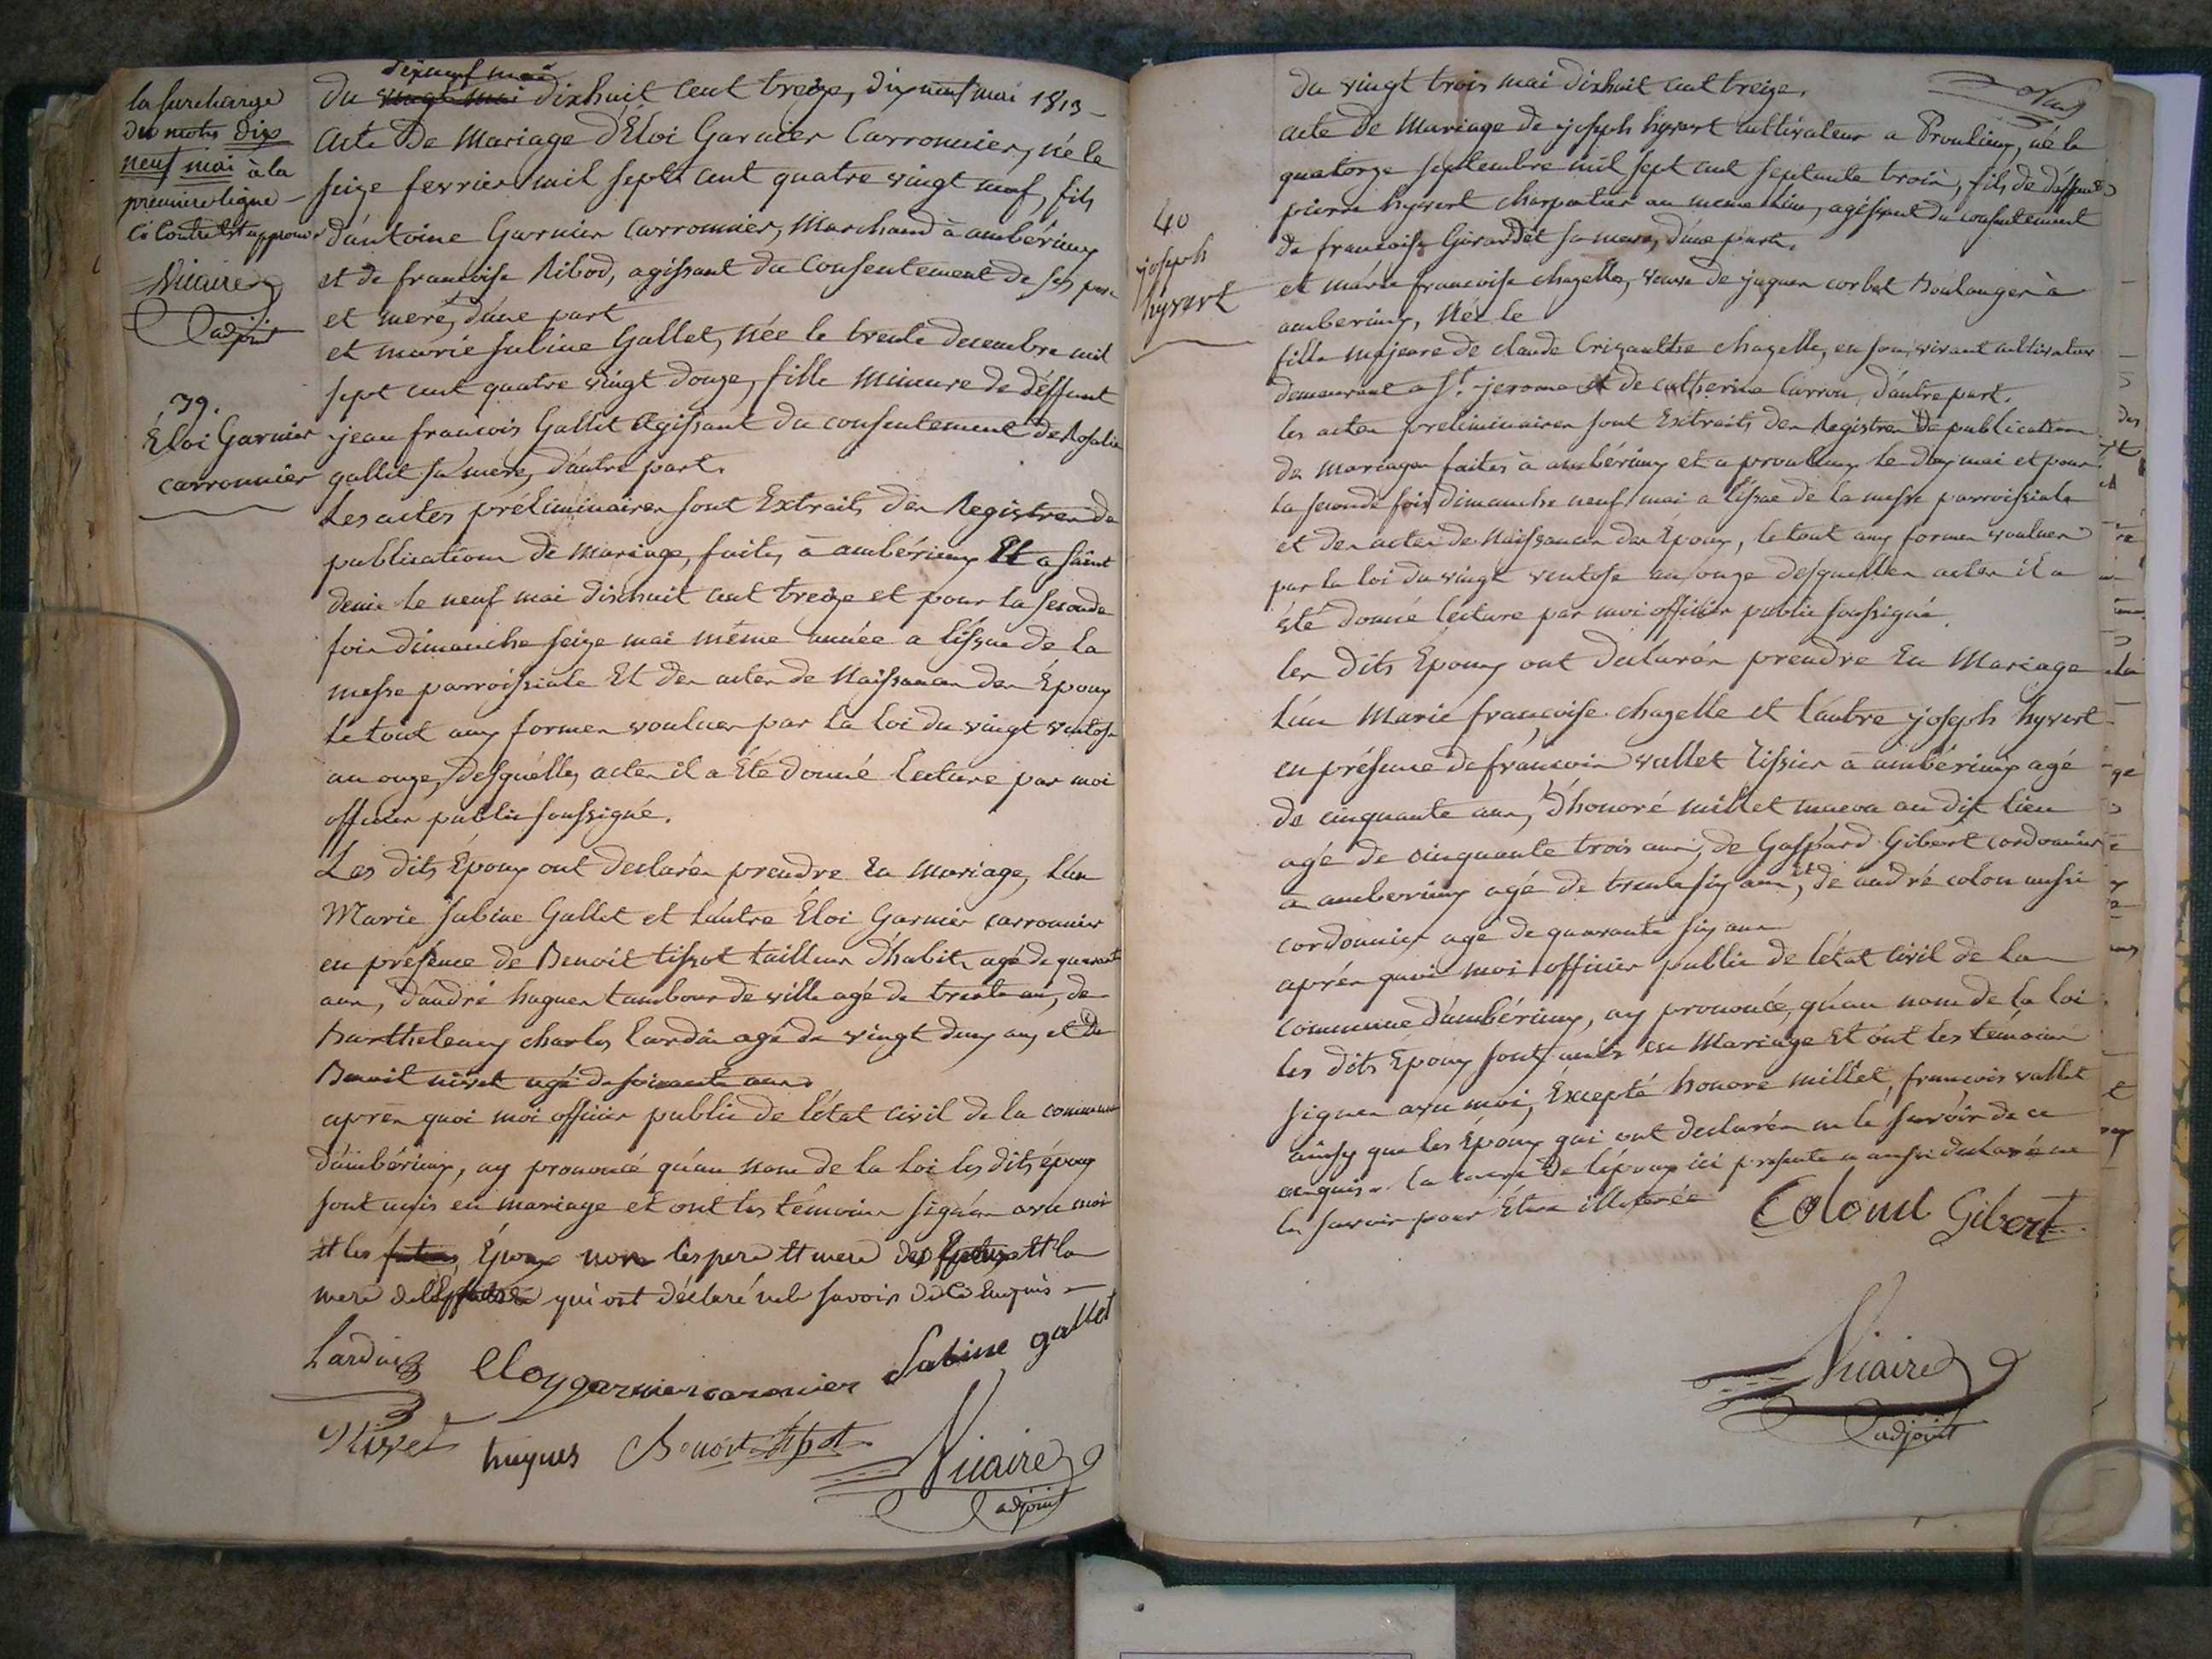 la surcharge
des mots dix
neuf mai à la
premiere ligne
ci contre est approuvé
Vicaire
adjoint
39.
Éloi Garnier
carronnier
dixneuf mai
du vingt mai dixhuit cent treize, dix neuf mai 1813
Acte de Mariage d'Éloi Garnier Carronnier, né le
seize fevrier mil sept cent quatre vingt neuf, fils
d'antoine Garnier Carronnier, Marchand à ambérieux
et de francoise Ribod, agissant du Consentement de ses pere
et mere, d'une part
et marie sabine Gallet, née le trente decembre mil
sept cent quatre vingt douze, fille Mineure de déffunt
jean francois Gallet Agissant du consentement de Rosalie
gallet sa mere, d'autre part.
Les actes préliminaires sont Extraits des Registres de
publications de Mariage, faites à ambérieux Et a saint
denis le neuf mai dixhuit cent treize et pour la seconde
fois dimanche seize mai même année a l'issue de la
messe parroissiale Et des actes de Naissances des Époux
le tout aux formes voulues par la loi du vingt ventose
an onze, desquelles actes il a été donné lecture par moi
officier public soussigné.
Les dits Époux ont declarés prendre en Mariage, l'un
Marie sabine Gallet et l'autre Éloi Garnier carronnier
en présence de Benoit tissot tailleur d'habits agé de quarante
ans, d'andré hugues tambour de ville agé de trente ans, de
Barthelemy charles Lardin agé de vingt deux ans, et de
Benoit nivet agé de soixante ans
après quoi moi officier public de l'état civil de la commune
d'ambérieux, ay prononcé qu'au nom de la loi les dits époux
sont unis en mariage et ont les témoins signés avec moi
et les futurs Époux non les pere et mere des et la
mere de qui ont déclaré ne le savoir de ce Enquis
Lardin Eloy garnier caronier Sabine gallet
Nivet hugues Benoit tissot Vicaire
adjoint
40
joseph
hyvert
du vingt trois mai dixhuit cent treize.
acte de Mariage de joseph hyvert cultivateur a Proulieux, né le
quatorze septembre mil sept cent septante trois, fils de déffunt
pierre hyvert charpentier au meme lieu, agissant du consentement
de francoise Girardet sa mere, d'une part.
et marie francoise chazelle, veuve de jaques corbet Boulanger à
amberieux, Née le
fille majeure de claude chazelle, en son vivant cultivateur
demeurant a St. jerome et de catherine Carron, d'autre part.
les actes preliminaires sont Extraits des Registres de publications
de mariages faites à ambérieux et a proulieux le deux mai et pour
la seconde fois dimanche neuf mai a l'issue de la messe parroissiale
et des actes de Naissances des Époux, le tout aux formes voulues
par la loi du vingt ventose an onze desquelles actes il a
été donné lecture par moi officier public soussigné.
les dits Époux ont declarés prendre En Mariage
l'un Marie françoise chazelle et l'autre joseph hyvert
en présence de francois vallet tissier à ambérieux agé
de cinquante ans, d'honoré millet macon au dit lieu
agé de cinquante trois ans, de Gaspard Gibert cordonnier
a amberieux agé de trente six ans, et de andré colon aussi
cordonnier agé de quarante six ans
après quoi moi officier public de l'état civil de la
commune d'ambérieux, ay prononcé, qu'au nom de la loi
les dits Époux sont unis en Mariage Et ont les témoins
signés avec moi, Excepté honoré millet, françois vallet
ainsy que les Époux qui ont declarés ne le savoir de ce
enquis. la mere de l'époux ici presente a aussi declaré ne
le savoir pour être illiterée
Colomb Gibert
Vicaire
adjoint